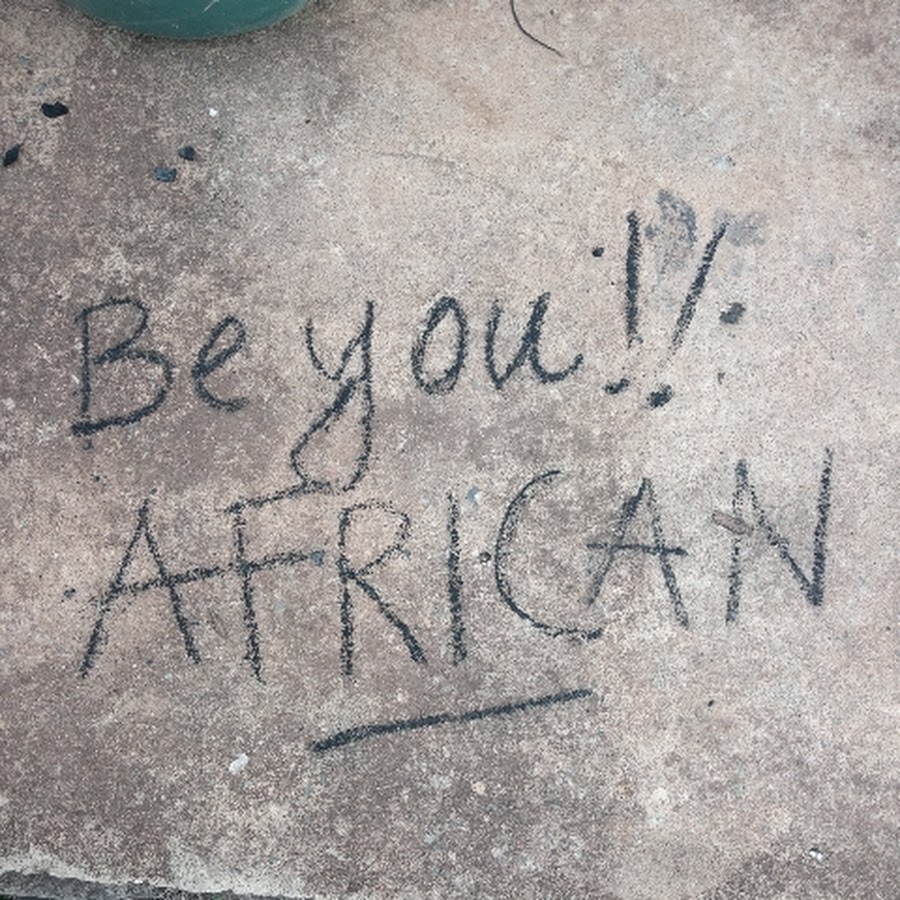 Be you!!
AFRICAN